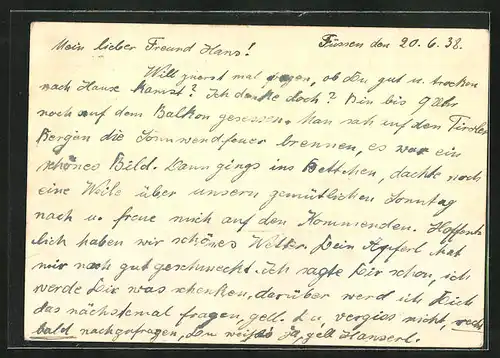 Mein lieber Freund Hans! Füssen den 20. 6. 38.
Will zuerst mal fragen, ob Du gut u. trocken
nach Hause kamst? Ich denke doch? Bin bis 9 Uhr
noch auf dem Balkon gesessen. Man sah auf den Tiroler
Bergen die Sonnwendfeuer brennen, es war ein
schönes Bild. Dann gings ins Bettchen, dachte noch
eine Weile über unsern gemütlichen Sonntag
nach u. freue mich auf den Kommenden. Hoffent-
lich haben wir schönes Wetter. Dein Apferl hat
mir noch gut geschmeckt. Ich sagte Dir schon, ich
werde Dir was schenken, darüber werd ich Dich
das nächstemal fragen, gell. Du, vergiss nicht, recht
bald nachzufragen, Du weißt ja, gell Hanserl.